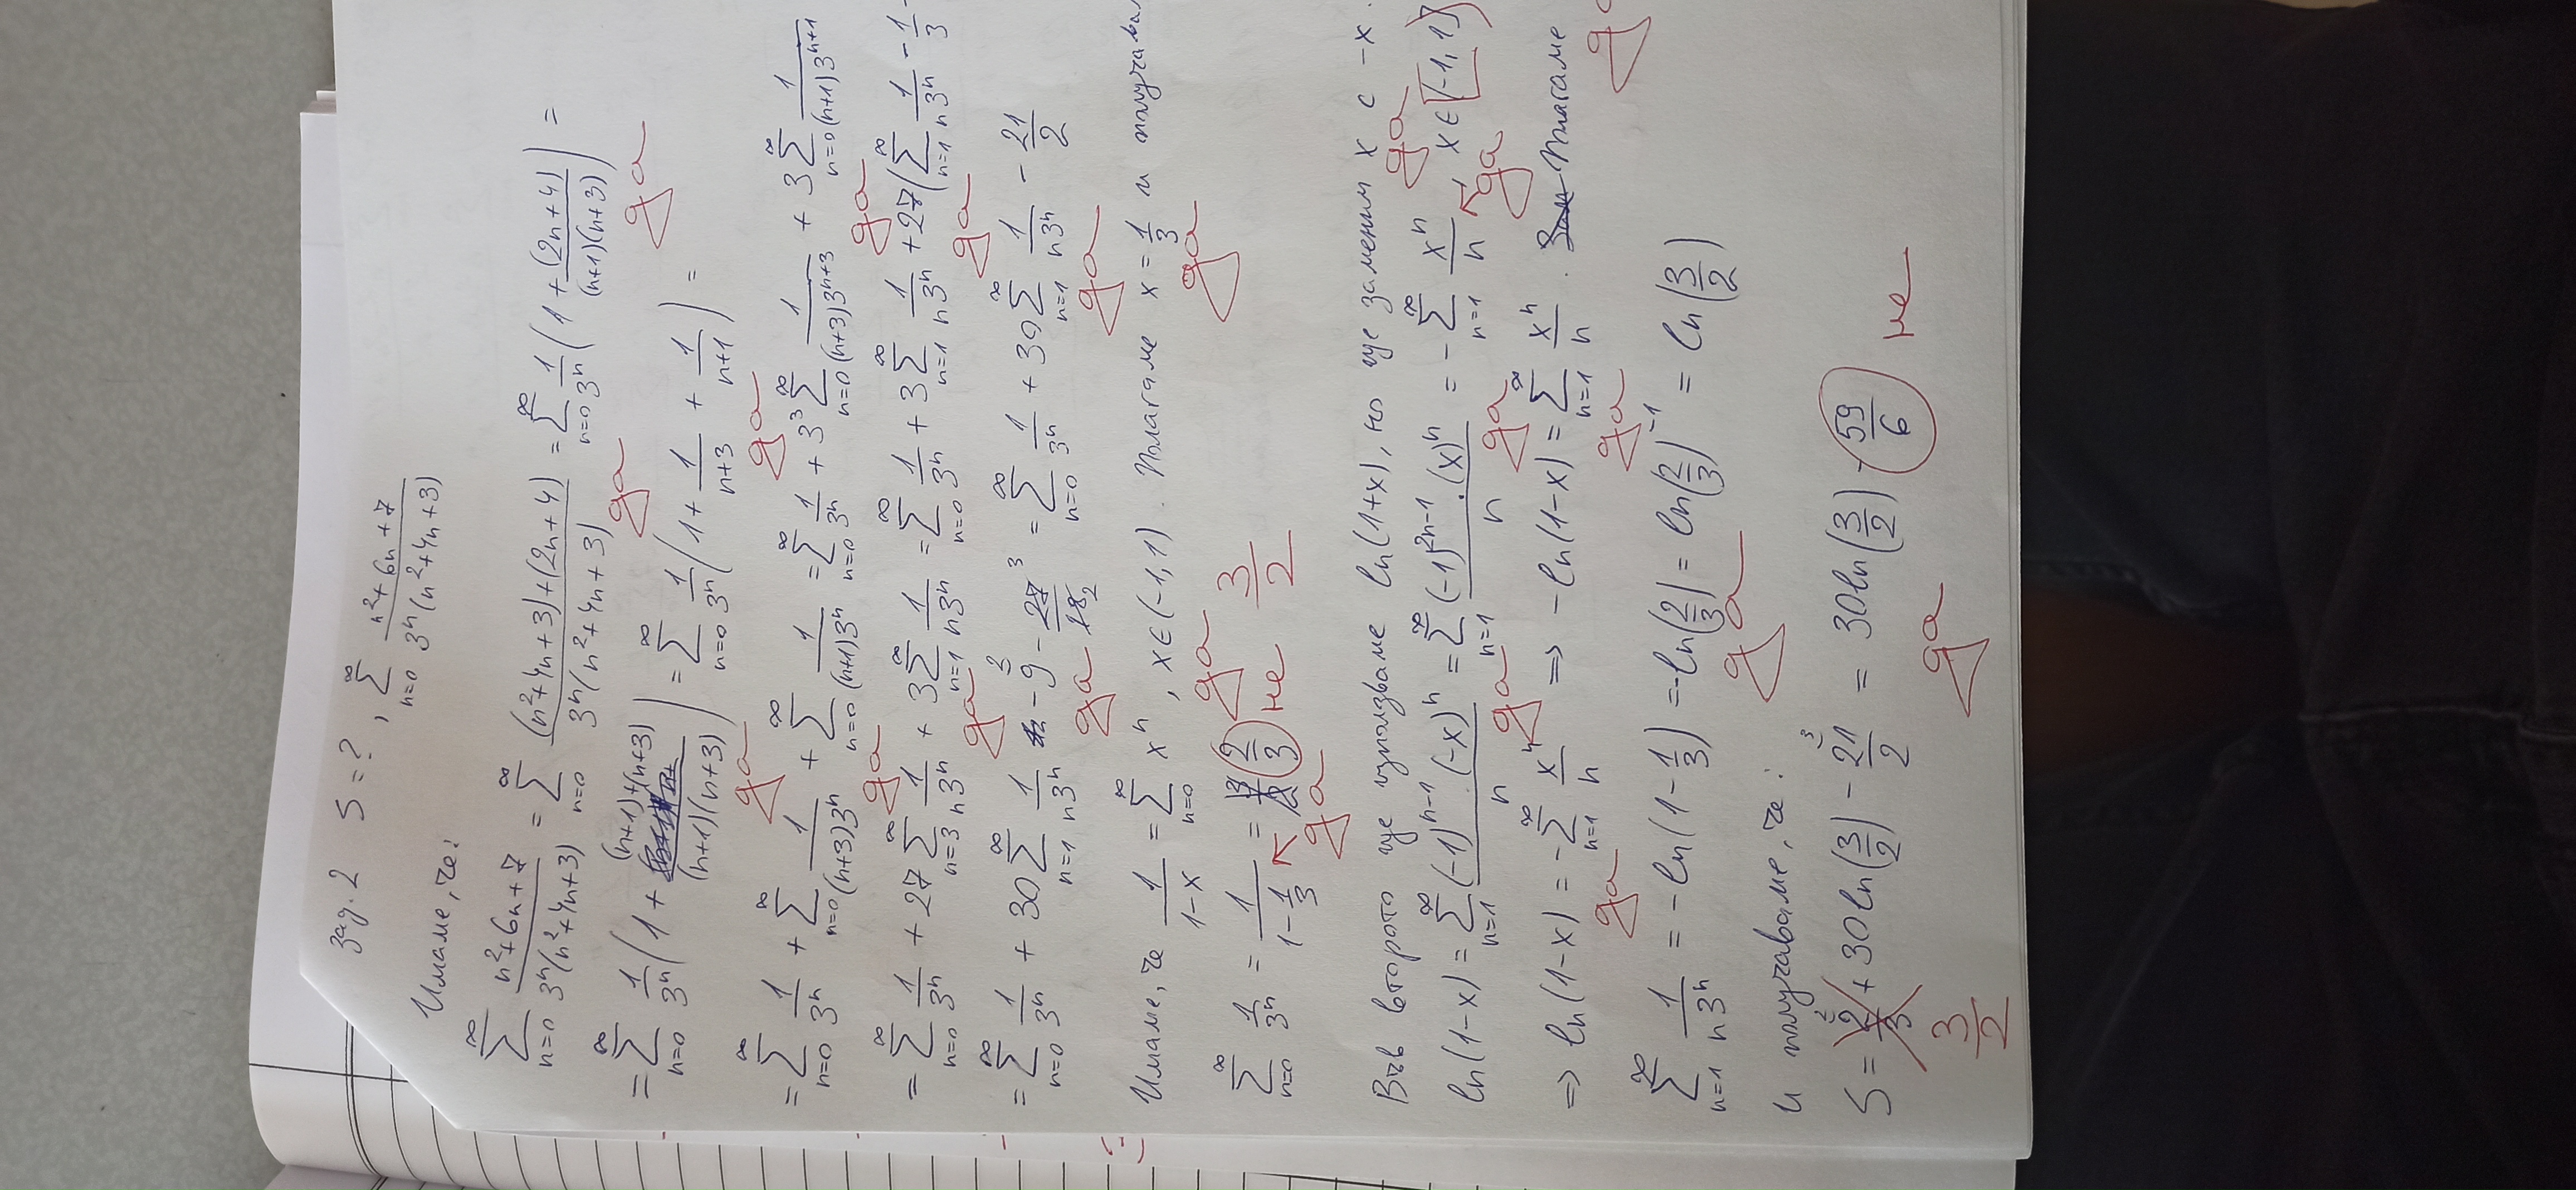 зад. 2 S = ? , ∑_{n=0}^{∞} (n²+6n+7)/(3ⁿ(n²+4n+3))
Имаме, че:
∑_{n=0}^{∞} (n²+6n+7)/(3ⁿ(n²+4n+3)) = ∑_{n=0}^{∞} ((n²+4n+3)+(2n+4))/(3ⁿ(n²+4n+3)) = ∑_{n=0}^{∞} 1/3ⁿ (1 + (2n+4)/((n+1)(n+3))) =
да да
= ∑_{n=0}^{∞} 1/3ⁿ (1 + ((n+1)+(n+3))/((n+1)(n+3))) = ∑_{n=0}^{∞} 1/3ⁿ (1 + 1/(n+3) + 1/(n+1)) =
да да
= ∑_{n=0}^{∞} 1/3ⁿ + ∑_{n=0}^{∞} 1/((n+3)3ⁿ) + ∑_{n=0}^{∞} 1/((n+1)3ⁿ) = ∑_{n=0}^{∞} 1/3ⁿ + 3³ ∑_{n=0}^{∞} 1/((n+3)3ⁿ⁺³) + 3 ∑_{n=0}^{∞} 1/((n+1)3ⁿ⁺¹)
да да
= ∑_{n=0}^{∞} 1/3ⁿ + 27 ∑_{n=3}^{∞} 1/(n3ⁿ) + 3 ∑_{n=1}^{∞} 1/(n3ⁿ) = ∑_{n=0}^{∞} 1/3ⁿ + 3 ∑_{n=1}^{∞} 1/(n3ⁿ) + 27(∑_{n=1}^{∞} 1/(n3ⁿ) - 1/3 -
да да
= ∑_{n=0}^{∞} 1/3ⁿ + 30 ∑_{n=1}^{∞} 1/(n3ⁿ) - 9 - 27/18 = ∑_{n=0}^{∞} 1/3ⁿ + 30 ∑_{n=1}^{∞} 1/(n3ⁿ) - 21/2
2 3 2
да да
Имаме, че 1/(1-x) = ∑_{n=0}^{∞} xⁿ , x∈(-1,1). Полагаме x = 1/3 и
да да
∑_{n=0}^{∞} 1/3ⁿ = 1/(1-1/3) = 3/2 2/3 не 3/2
да
Във второто ще използваме ln(1+x), но ще заменим x с -x.
да
ln(1-x) = ∑_{n=1}^{∞} (-1)ⁿ⁻¹.(-x)ⁿ/n = ∑_{n=1}^{∞} (-1)²ⁿ⁻¹.(x)ⁿ/n = -∑_{n=1}^{∞} xⁿ/n , x∈[-1,1)
да да да
⇒ ln(1-x) = -∑_{n=1}^{∞} xⁿ/n ⇒ -ln(1-x) = ∑_{n=1}^{∞} xⁿ/n . Полагаме
да да
∑_{n=1}^{∞} 1/(n3ⁿ) = -ln(1-1/3) = -ln(2/3) = ln(2/3)⁻¹ = ln(3/2)
да
и получаваме, че:
S = 2/3 + 30ln(3/2) - 21/2 = 30ln(3/2) - 59/6 не
2 3
3/2 да